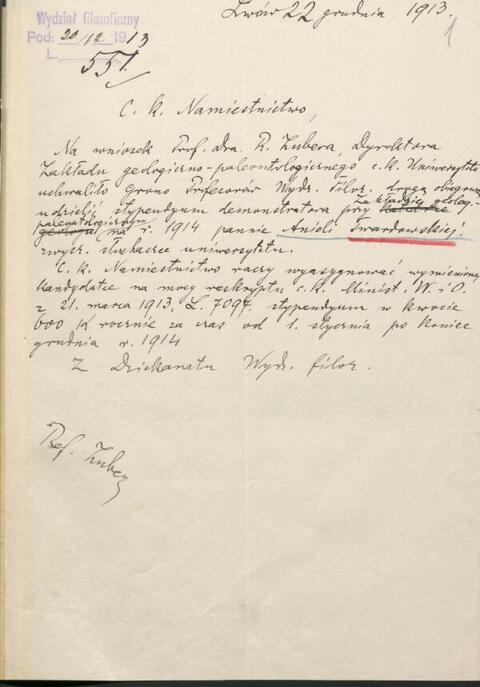 Lwów 22 grudnia 1913.
1
Wydział filozoficzny
Pod: 20/12 1913
L.
551.
C. k. Namiestnictwo,
Na wniosek Prof. dra. R. Zubera, Dyrektora
Zakładu geologiczno-paleontologicznego c. k. Uniwersytetu
uchwaliło Grono Profesorów Wydz. filoz. drogą obiegową
udzielić stypendyum demonstratora przy katedrze Zakładzie geolog.-
geologii paleontologicznym na r. 1914 pannie Anieli Twardowskiej,
zwycz. słuchaczce uniwersytetu.
C. k. Namiestnictwo raczy wyasygnować wymienionej
kandydatce na mocy reskryptu c. k. Minist. W. i O.
z 21. marca 1913, L. 7097, stypendyum w kwocie
600 K rocznie za czas od 1. stycznia po koniec
grudnia r. 1914
Z Dziekanatu Wydz. filoz.
Prof. Zuber